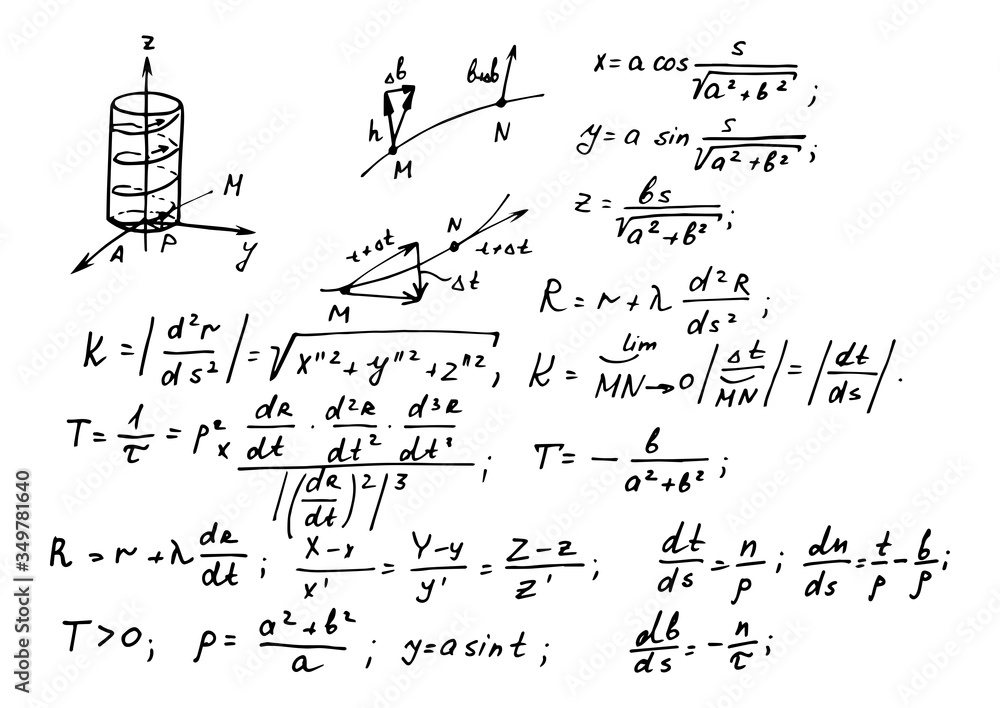 z
M
A P y
Δb
h
M
b+Δb
N
x = a cos s/√(a²+b²) ;
y = a sin s/√(a²+b²) ;
z = bs/√(a²+b²) ;
t+Δt N t+Δt
Δt
M
R = r + λ d²R/ds² ;
K = |d²r/ds²| = √(x''² + y''² + z''²) ;
K = lim MN→0 |Δt/MN| = |dt/ds| .
T = 1/τ = ρ² x (dR/dt · d²R/dt² · d³R/dt³) / |(dR/dt)²|³ ;
T = − b/(a²+b²) ;
R = r + λ dR/dt ; (X−x)/x' = (Y−y)/y' = (Z−z)/z' ; dt/ds = n/ρ ; dn/ds = t/ρ − b/ρ ;
T > 0 ; ρ = (a²+b²)/a ; y = a sin t ; db/ds = − n/τ ;
Adobe Stock | #349781640